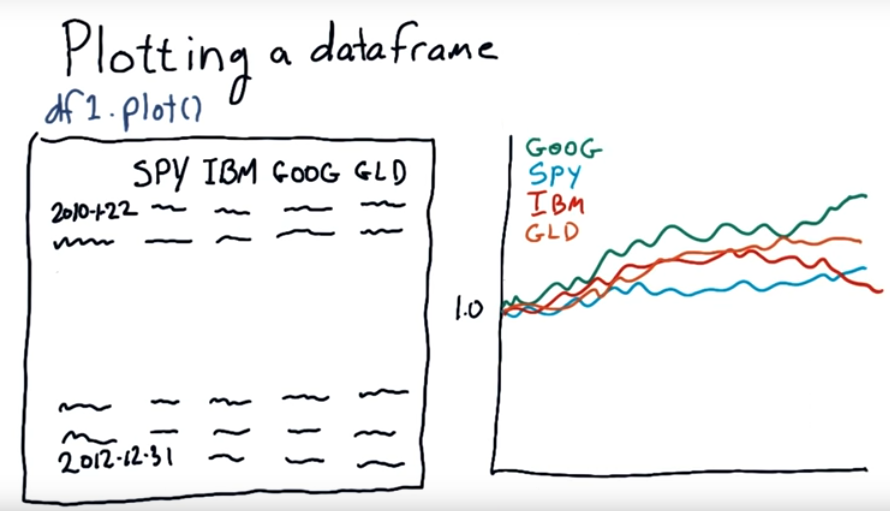 Plotting a dataframe
df1.plot()
SPY IBM GOOG GLD
2010-1-22
2012-12-31
GOOG
SPY
IBM
GLD
1.0